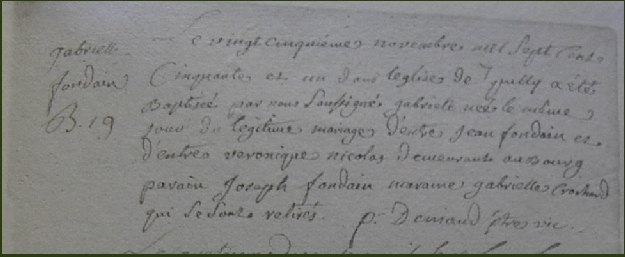 gabrielle
fondain
B. 19
Le vingt cinquieme novembre mil sept cents
Cinquante et un dans leglise de a été
Baptisée par nous soussigné gabriele née le même
jour du legitime mariage d'entre jean fondain et
d'entre veronique nicolas demeurants au Bourg
parain Joseph fondain maraine gabrielle
qui se sont retirés. p. Deniaud ptre vic.